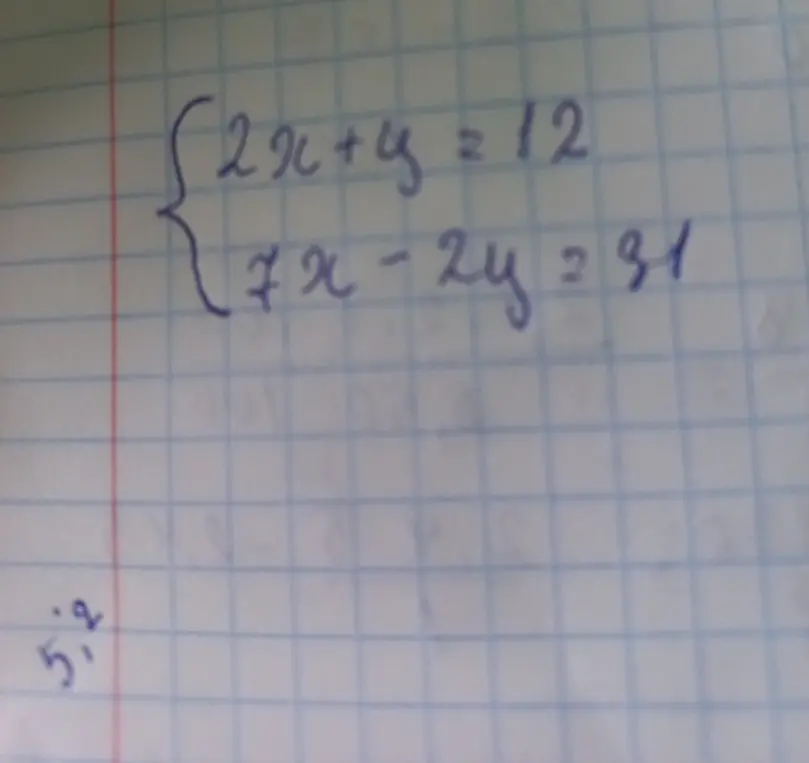 2x+y=12
7x-2y=31